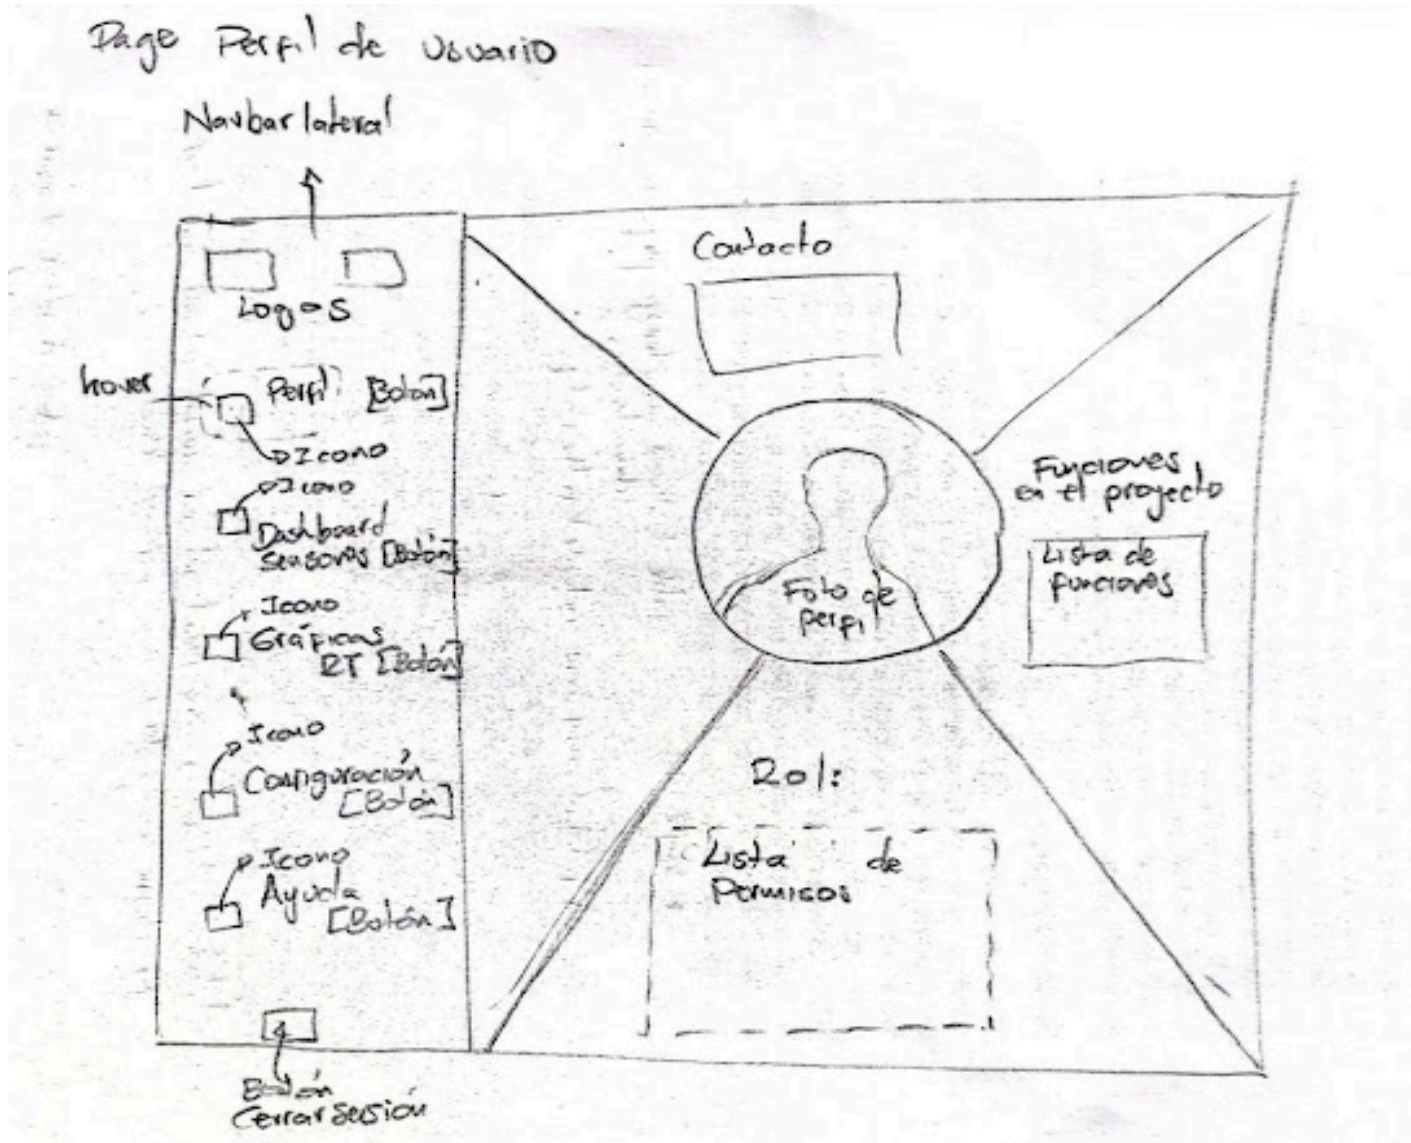 Page Perfil de usuario
Navbar lateral
Logos
hover
Perfil [Botón]
Icono
Icono
Dashboard
sensores [Botón]
Icono
Gráficas
RT [Botón]
Icono
Configuración
[Botón]
Icono
Ayuda
[Botón]
Botón
Cerrar sesión
Contacto
Funciones
en el proyecto
Lista de
funciones
Foto de
perfil
Rol:
Lista de
Permisos